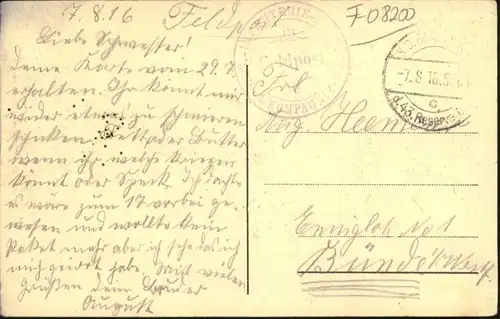 7.8.16
Feldpost
F08200
Liebe Schwester!
deine Karte vom 29.7.
erhalten. Ihr könnt mir
wider etwas zu
schicken. Fett oder Butter
wenn ihr welche kriegen
könnt oder Speck. Ich dachte
es wäre zum 17 vorbei ge-
wesen und wollte kein
Paket mehr aber ich sehe das ich
mich geirrt habe. Mit vielen
Grüßen dein Bruder
August
Feldpost
KOMPAGNIE
-7.8.16.5
G
d.43.Reserve
Frl
Ennigloh No 1
Bünde